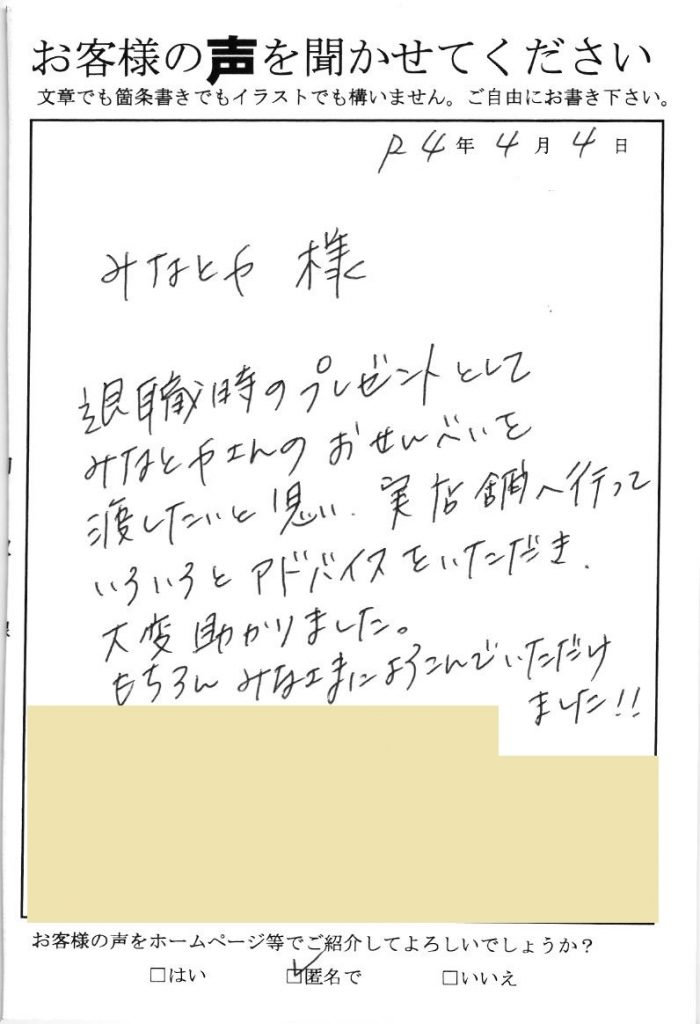 お客様の声を聞かせてください
文章でも箇条書きでもイラストでも構いません。ご自由にお書き下さい。
R4年4月4日
みなとや 様
退職時のプレゼントとして
みなとやさんのおせんべいを
渡したいと思い、実店舗へ行って
いろいろとアドバイスをいただき、
大変助かりました。
もちろんみなさまによろこんでいただけ
ました!!
お客様の声をホームページ等でご紹介してよろしいでしょうか?
□はい ☑匿名で □いいえ